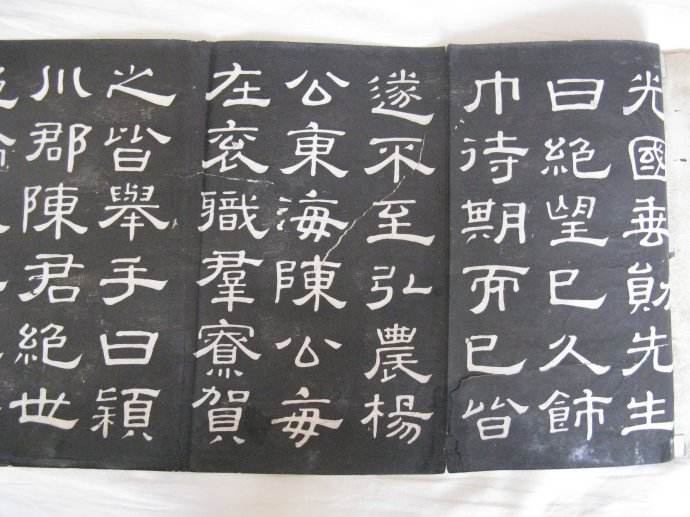 光國垂勛先生
曰絕望已久飾
巾待期而已皆
遂不至弘農楊
公東海陳公每
在袞職羣寮賀
之皆舉手曰穎
川郡陳君絕世